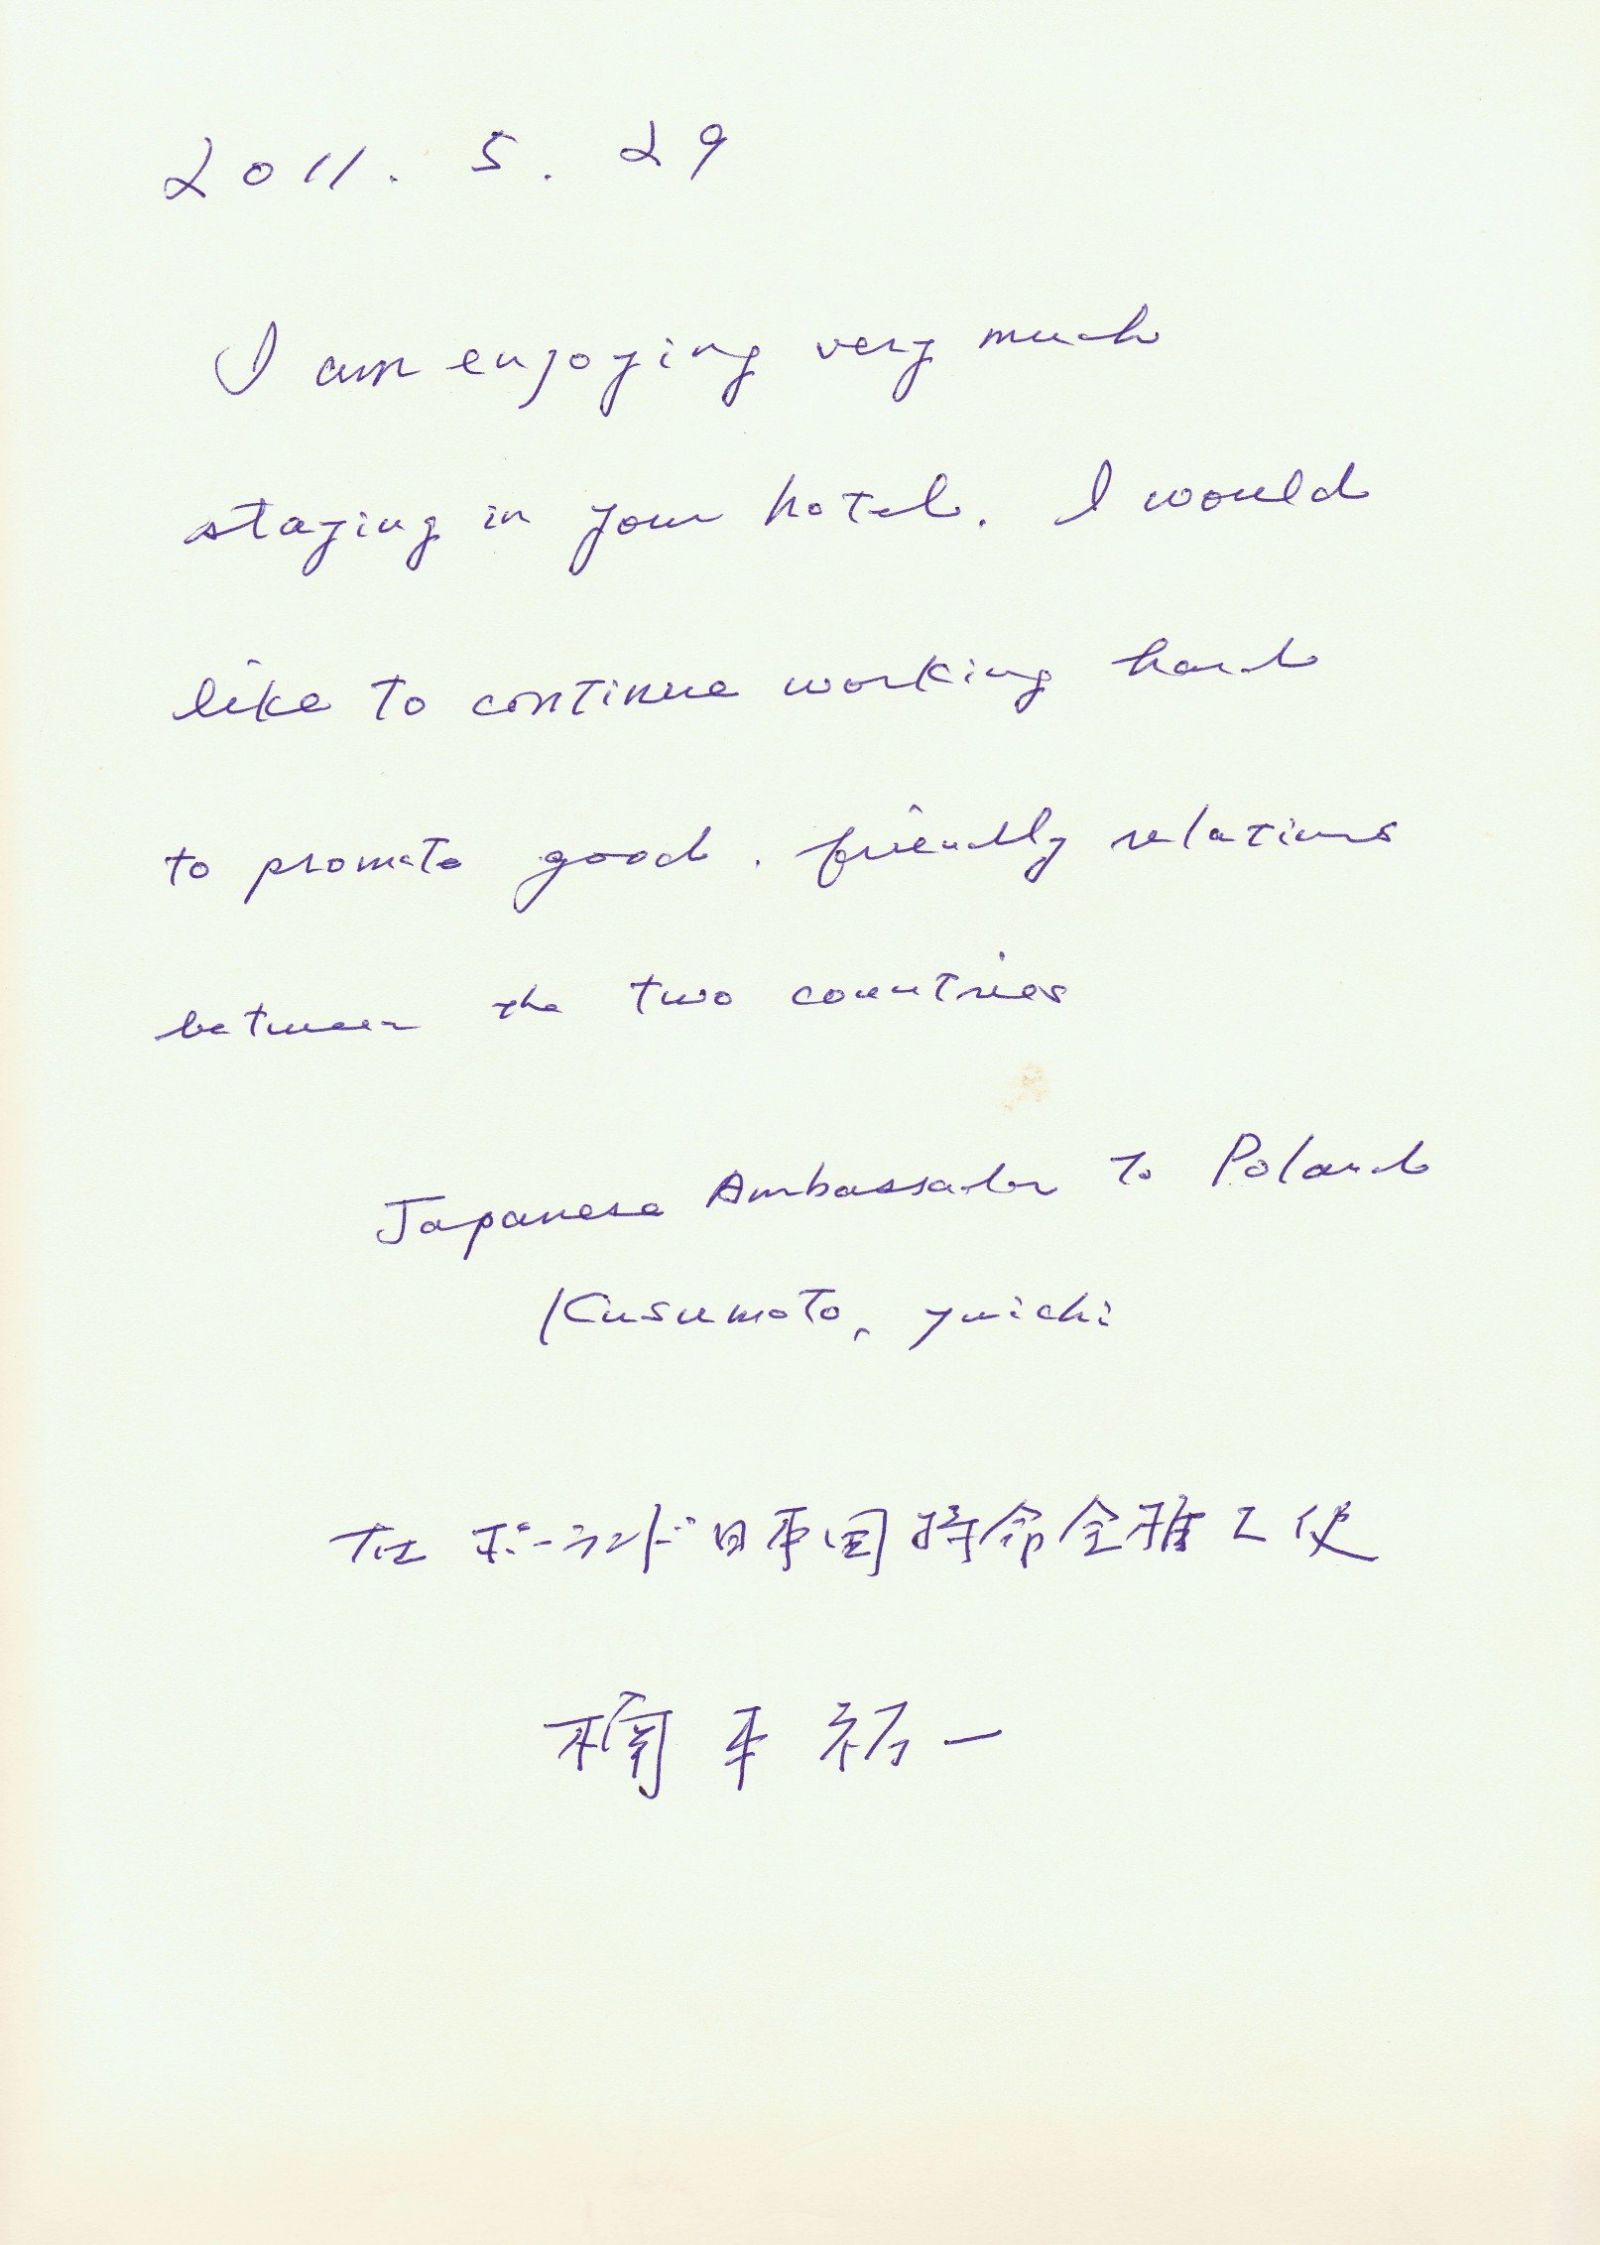 2011. 5. 29
I am enjoying very much
staying in your hotel. I would
like to continue working hard
to promote good, friendly relations
between the two countries
Japanese Ambassador to Poland
Kusumoto, yuichi
在ポーランド日本国特命全権大使
楠本祐一